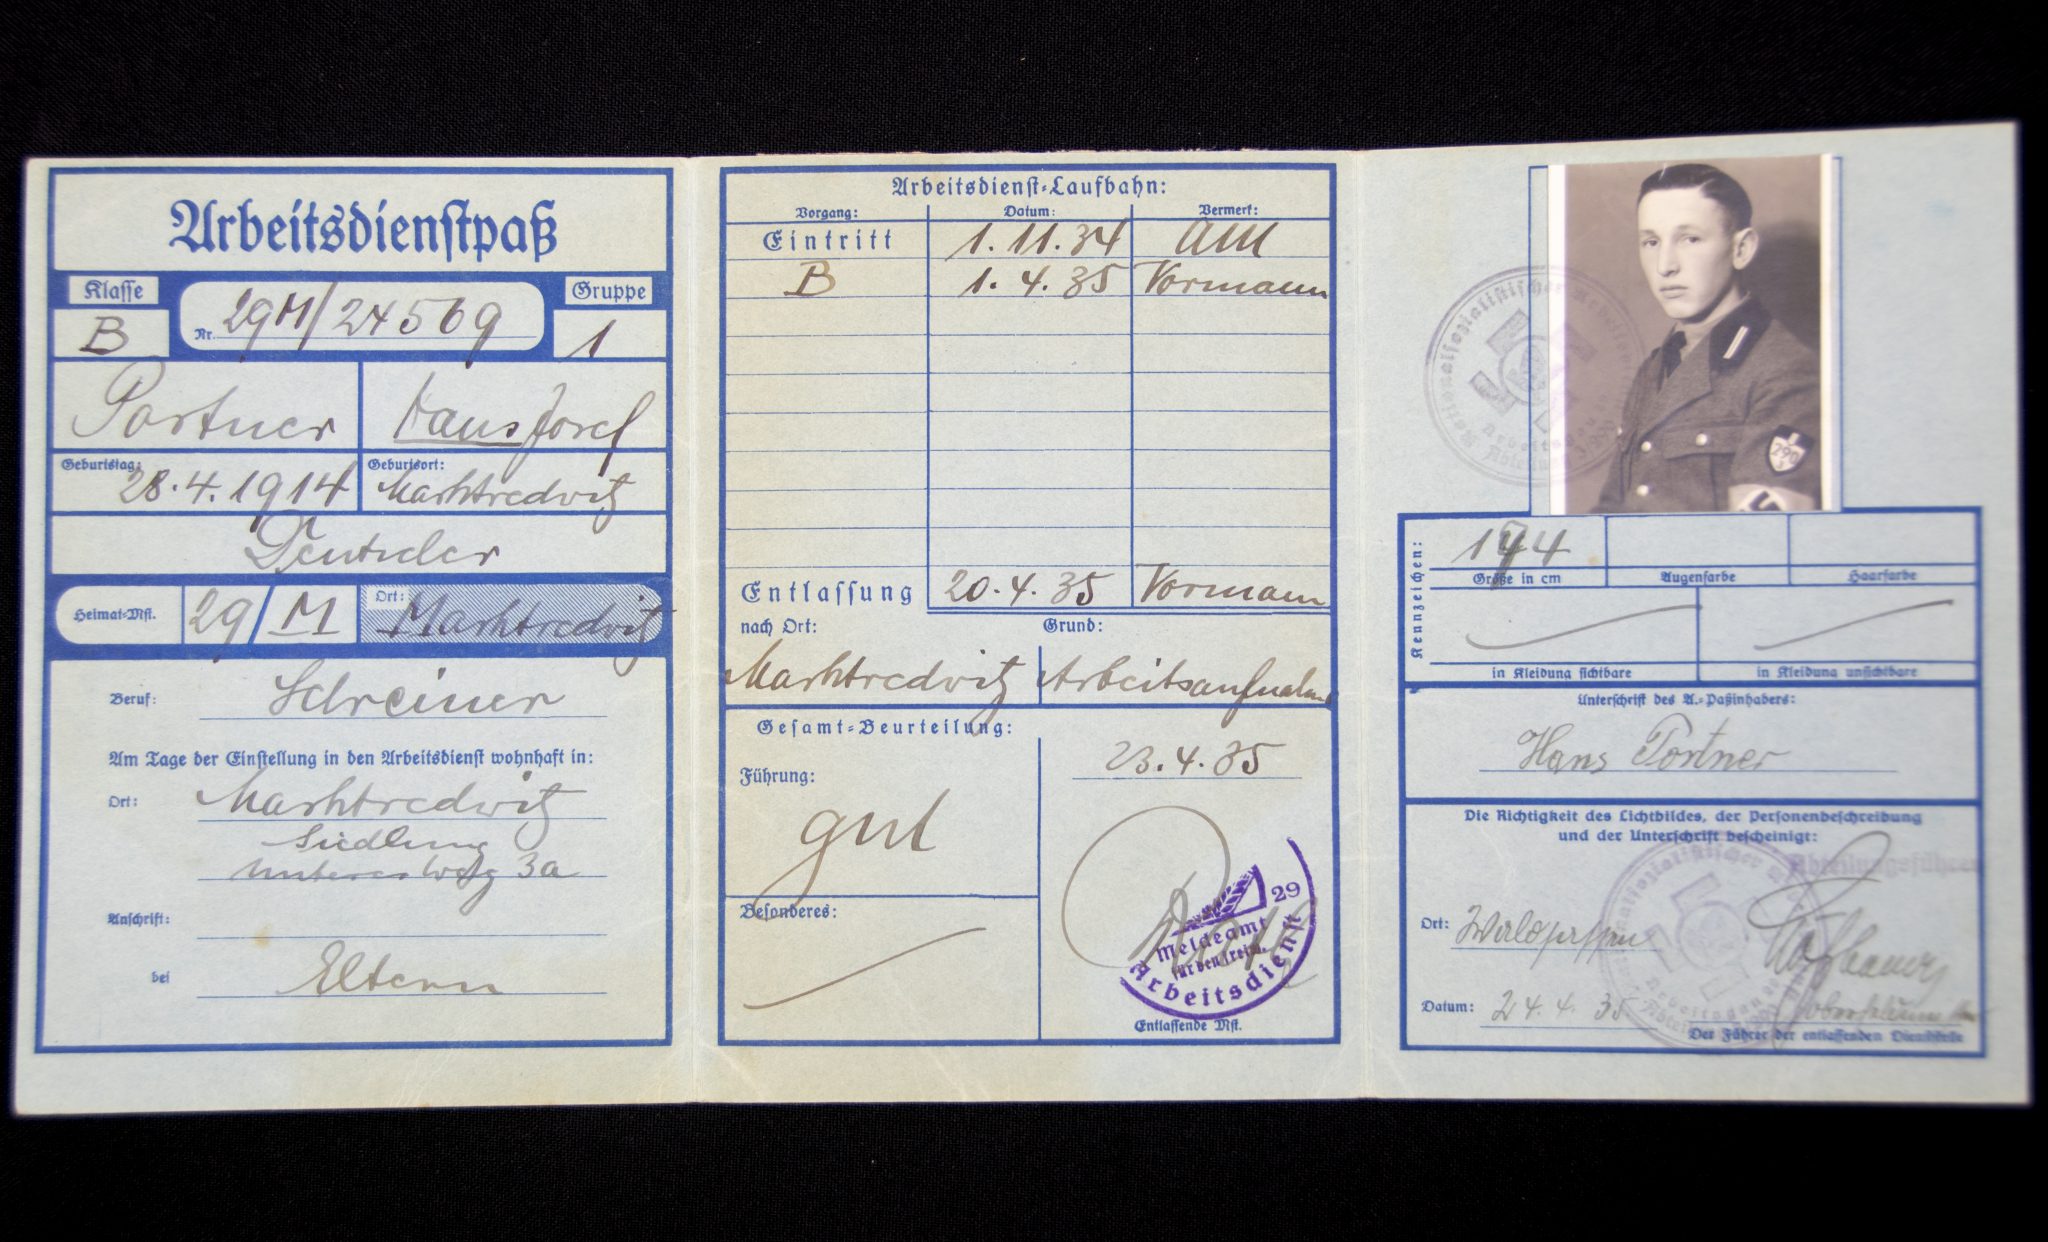 Arbeitsdienstpaß
Klasse
Gruppe
B
Nr. 29M/24569
1
Portner
Hans Josef
Geburtstag:
28.4.1914
Geburtsort:
Marktredwitz
Deutscher
Heimat-Mst.
29/M
Ort:
Marktredwitz
Beruf: Schreiner
Am Tage der Einstellung in den Arbeitsdienst wohnhaft in:
Ort: Marktredwitz
Siedlung
unterer Weg 3a
Anschrift:
bei Eltern
Arbeitsdienst-Laufbahn:
Vorgang: Datum: Vermerk:
Eintritt 1.11.34 AM
B 1.4.35 Vormann
Entlassung 20.4.35 Vormann
nach Ort: Grund:
Marktredwitz Arbeitsaufnahme
Gesamt-Beurteilung:
23.4.35
Führung:
gut
Besonderes:
29
Meldeamt
für den freiw.
Arbeitsdienst
Entlassende Mst.
Nationalsozialistischer Arbeitsdienst
290
3
Kennzeichen:
174
Größe in cm
Augenfarbe
Haarfarbe
in Kleidung sichtbare
in Kleidung unsichtbare
Unterschrift des A.-Paßinhabers:
Hans Portner
Die Richtigkeit des Lichtbildes, der Personenbeschreibung
und der Unterschrift bescheinigt:
Abteilungsführer
Ort: Waldsassen
Datum: 24.4.35
Der Führer der entlassenden Dienststelle